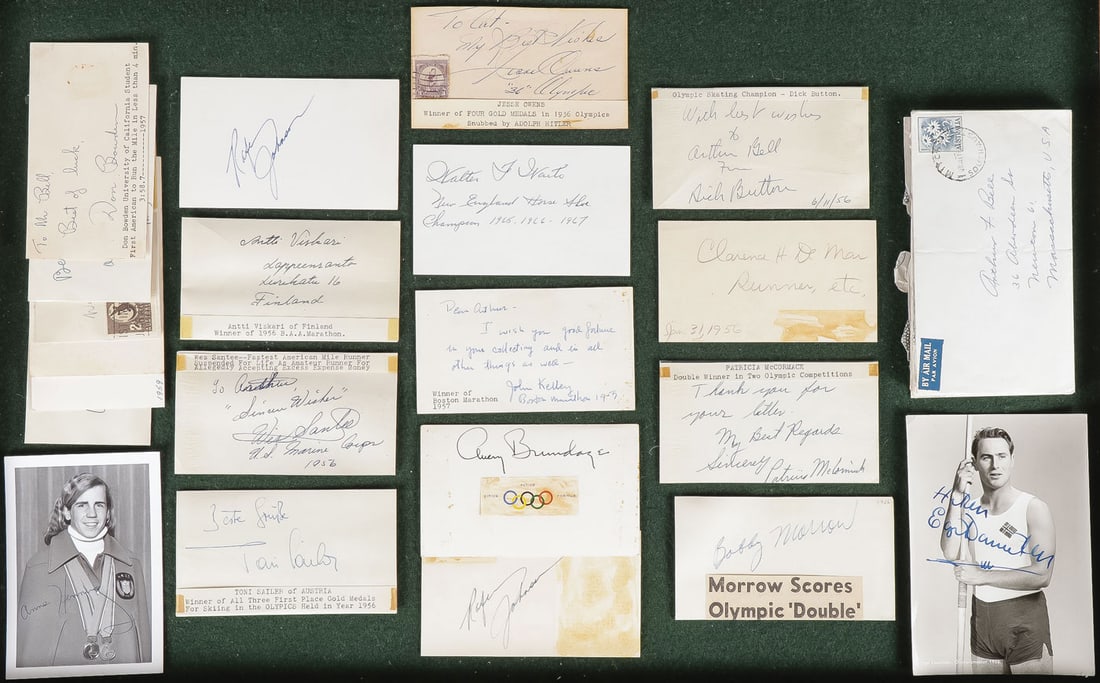 To Mr Bell
Best of luck
Don Bowden
Don Bowden University of California Student
First American to Run the Mile in Less than 4 min.
3:58.7----------1957
1959
Rafer
Johnson
Antti Viskari
Lappeenranta
Finland
Antti Viskari of Finland
Winner of 1956 B.A.A.Marathon.
Wes Santee--Fastest American Mile Runner
Suspended For Life As Amateur Runner For
Allegedly Accepting Excess Expense Money
To Arthur
"Sincere Wishes"
Wes Santee
U.S. Marine Corps
1956
Toni Sailer
TONI SAILER of AUSTRIA
Winner of All Three First Place Gold Medals
For Skiing in the OLYPICS Held in Year 1956
To Art-
My Best Wishes
Jesse Owens
"36" Olympic
JESSE OWENS
Winner of FOUR GOLD MEDALS in 1936 Olympics
Snubbed by ADOLPH HITLER
Walter F
New England Horse Shoe
Champion 1965-1966-1967
Dear Arthur-
I wish you good fortune
in your collecting and in all
other things as well-
John Kelley
Boston Marathon
Winner of
Boston Marathon
1957
Avery Brundage
CITIUS ALTIUS FORTIUS
Rafer
Johnson
Olympic Skating Champion - Dick Button.
With best wishes
to
Arthur Bell
From
Dick Button
6/11/56
Clarence H De Mar
Runner, etc,
Jan. 31, 1956
PATRICIA McCORMACK
Double Winner in Two Olympic Competitions
Thank you for
your letter.
My Best Regards
Sincerely Patricia McCormick
Bobby Morrow
Morrow Scores
Olympic 'Double'
AUSTRALIA
Arthur F Bell
36 Aberdeen
Massachusetts, USA
BY AIR MAIL
PAR AVION
Anne Henning
Hilsen
Egil Danielsen